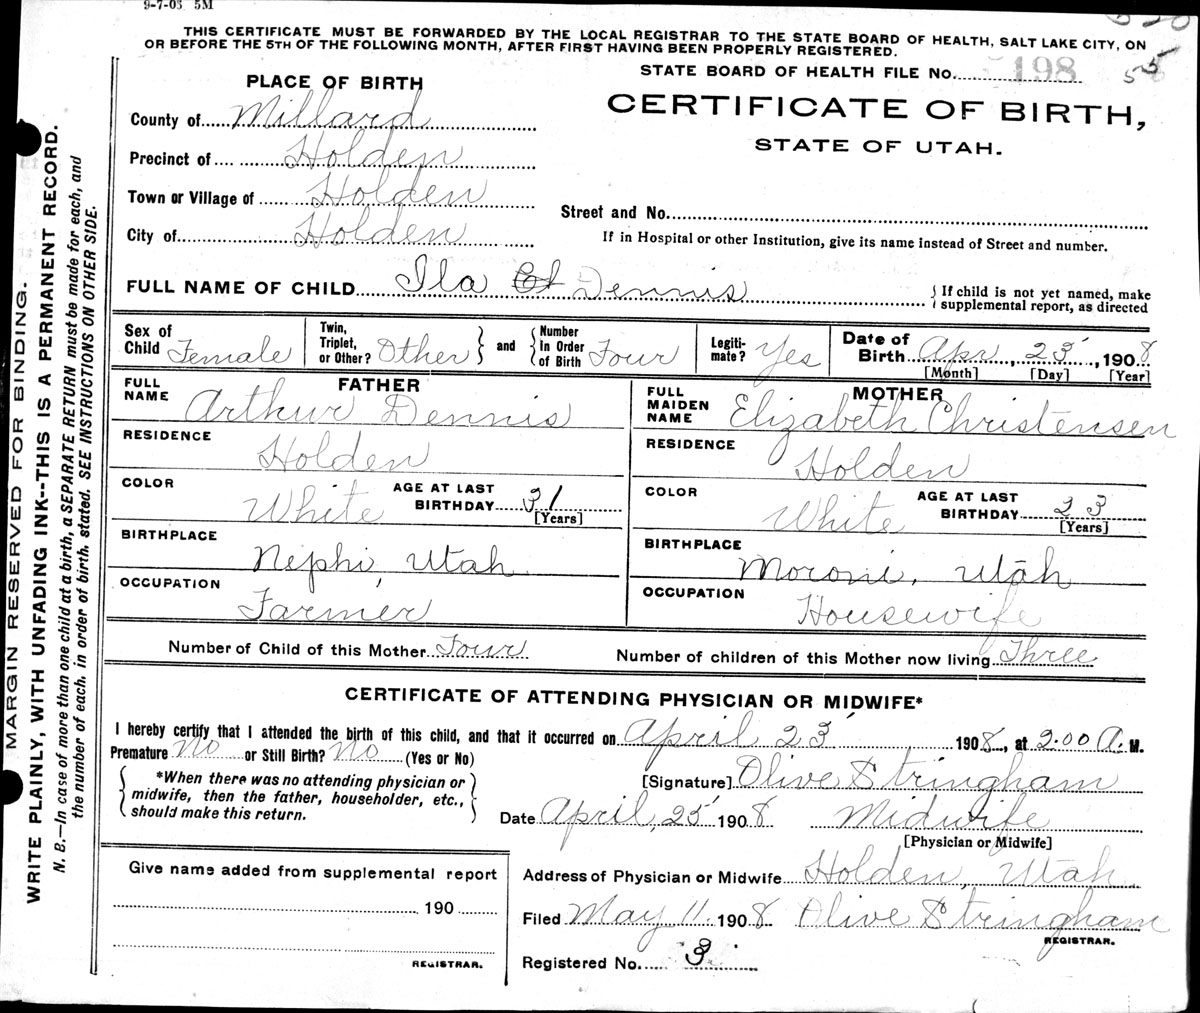 9-7-03 5M
THIS CERTIFICATE MUST BE FORWARDED BY THE LOCAL REGISTRAR TO THE STATE BOARD OF HEALTH, SALT LAKE CITY, ON
OR BEFORE THE 5TH OF THE FOLLOWING MONTH, AFTER FIRST HAVING BEEN PROPERLY REGISTERED.
STATE BOARD OF HEALTH FILE No. 198
55
PLACE OF BIRTH
CERTIFICATE OF BIRTH,
STATE OF UTAH.
County of Millard
Precinct of Holden
Town or Village of Holden
City of Holden
Street and No.
If in Hospital or other Institution, give its name instead of Street and number.
FULL NAME OF CHILD Ila Dennis
{If child is not yet named, make
supplemental report, as directed
Sex of Child Female
Twin, Triplet, or Other? Other } and { Number In Order of Birth Four
Legitimate? Yes
Date of Birth Apr, 23, 1908
[Month] [Day] [Year]
FATHER
FULL NAME Arthur Dennis
RESIDENCE Holden
COLOR White AGE AT LAST BIRTHDAY 31 [Years]
BIRTHPLACE Nephi, Utah
OCCUPATION Farmer
MOTHER
FULL MAIDEN NAME Elizabeth Christensen
RESIDENCE Holden
COLOR White AGE AT LAST BIRTHDAY 23 [Years]
BIRTHPLACE Moroni, Utah
OCCUPATION Housewife
Number of Child of this Mother Four Number of children of this Mother now living Three
CERTIFICATE OF ATTENDING PHYSICIAN OR MIDWIFE*
I hereby certify that I attended the birth of this child, and that it occurred on April 23 1908, at 2:00 A. M.
Premature No or Still Birth? No (Yes or No)
*When there was no attending physician or
midwife, then the father, householder, etc.,
should make this return.
[Signature] Olive Stringham
Date April, 25 1908 Midwife
[Physician or Midwife]
Give name added from supplemental report
190
REGISTRAR.
Address of Physician or Midwife Holden, Utah
Filed May 11. 1908 Olive Stringham
REGISTRAR.
Registered No. 3
MARGIN RESERVED FOR BINDING.
WRITE PLAINLY, WITH UNFADING INK--THIS IS A PERMANENT RECORD.
N. B.—In case of more than one child at a birth, a SEPARATE RETURN must be made for each, and
the number of each, in order of birth, stated. SEE INSTRUCTIONS ON OTHER SIDE.